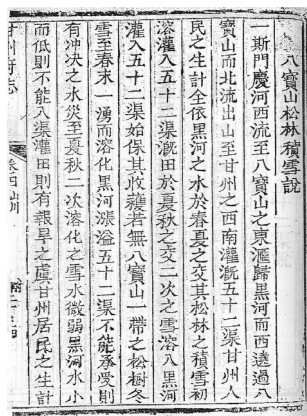 八寶山松林積雪說
一斯門慶河西流至八寶山之東滙歸黑河而西遶過八
寶山而北流出山至甘州之西南灌溉五十二渠甘州人
民之生計全依黑河之水於春夏之交其松林之積雪初
溶灌入五十二渠溉田於夏秋之交二次之雪溶入黑河
灌入五十二渠始保其收穫若無八寶山一帶之松樹冬
雪至春末一湧而溶化黑河漲溢五十二渠不能承受則
有冲决之水災至夏秋二次溶化之雪水微弱黑河水小
而低則不能入渠灌田則有報旱之虞甘州居民之生計
甘州府志
卷四